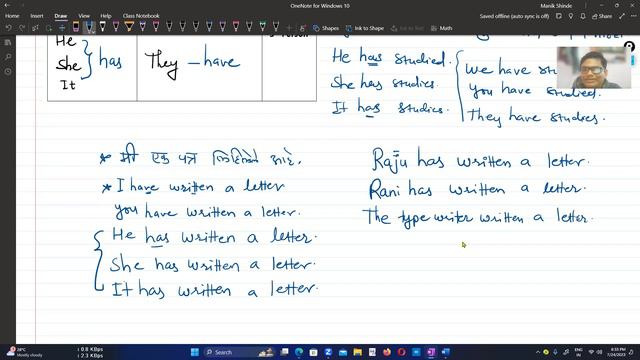 OneNote for Windows 10
Manik Shinde
Saved offline (auto sync is off)
File Home Insert Draw View Help Class Notebook
Shapes Ink to Shape Ink to Text Math
He
She
It
has
They – have
He has studied.
She has studies.
It has studies.
We have
you have studied.
They have studies.
* मी एक पत्र लिहिलेले आहे.
* I have written a letter
you have written a letter.
He has written a letter.
She has written a letter.
It has written a letter.
Raju has written a letter.
Rani has written a letter.
The type writer written a letter.
28°C
Mostly cloudy
0.8 KBps
2.3 KBps
Search
ENG
IN
8:53 PM
7/24/2023